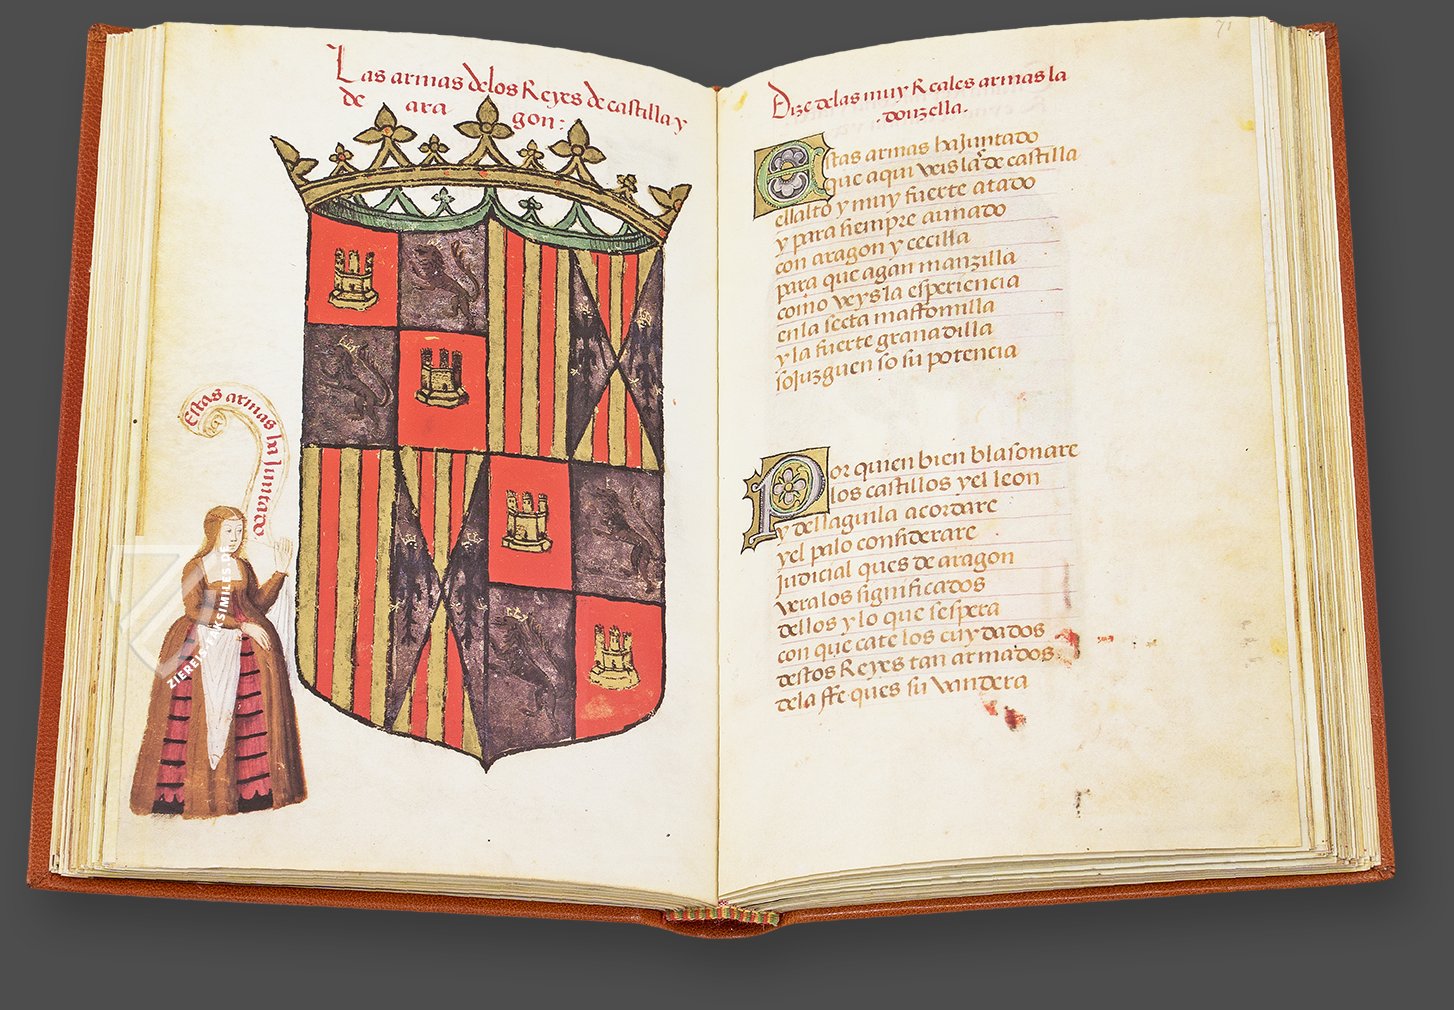 Las armas delos Reyes de castilla y
de ara gon:
Estas armas ha Juntado
ZIEREIS FAKSIMILES
71
Dize delas muy Reales armas la
.donzella.
Estas armas haJuntado
que aqui veis la de castilla
ellalto y muy fuerte atado
y para siempre aunado
con aragon y cecilla
para que agan manzilla
como veys la esperiencia
en la secta massomilla
y la fuerte granadilla
sojuzguen so su potencia
Por quien bien blasonare
los castillos y el leon
y dellaguila acordare
y el palo considerare
Judicial ques de aragon
vera los significados
dellos y lo que sespera
con que cate los cuydados
destos Reyes tan armados
dela ffe ques su vandera